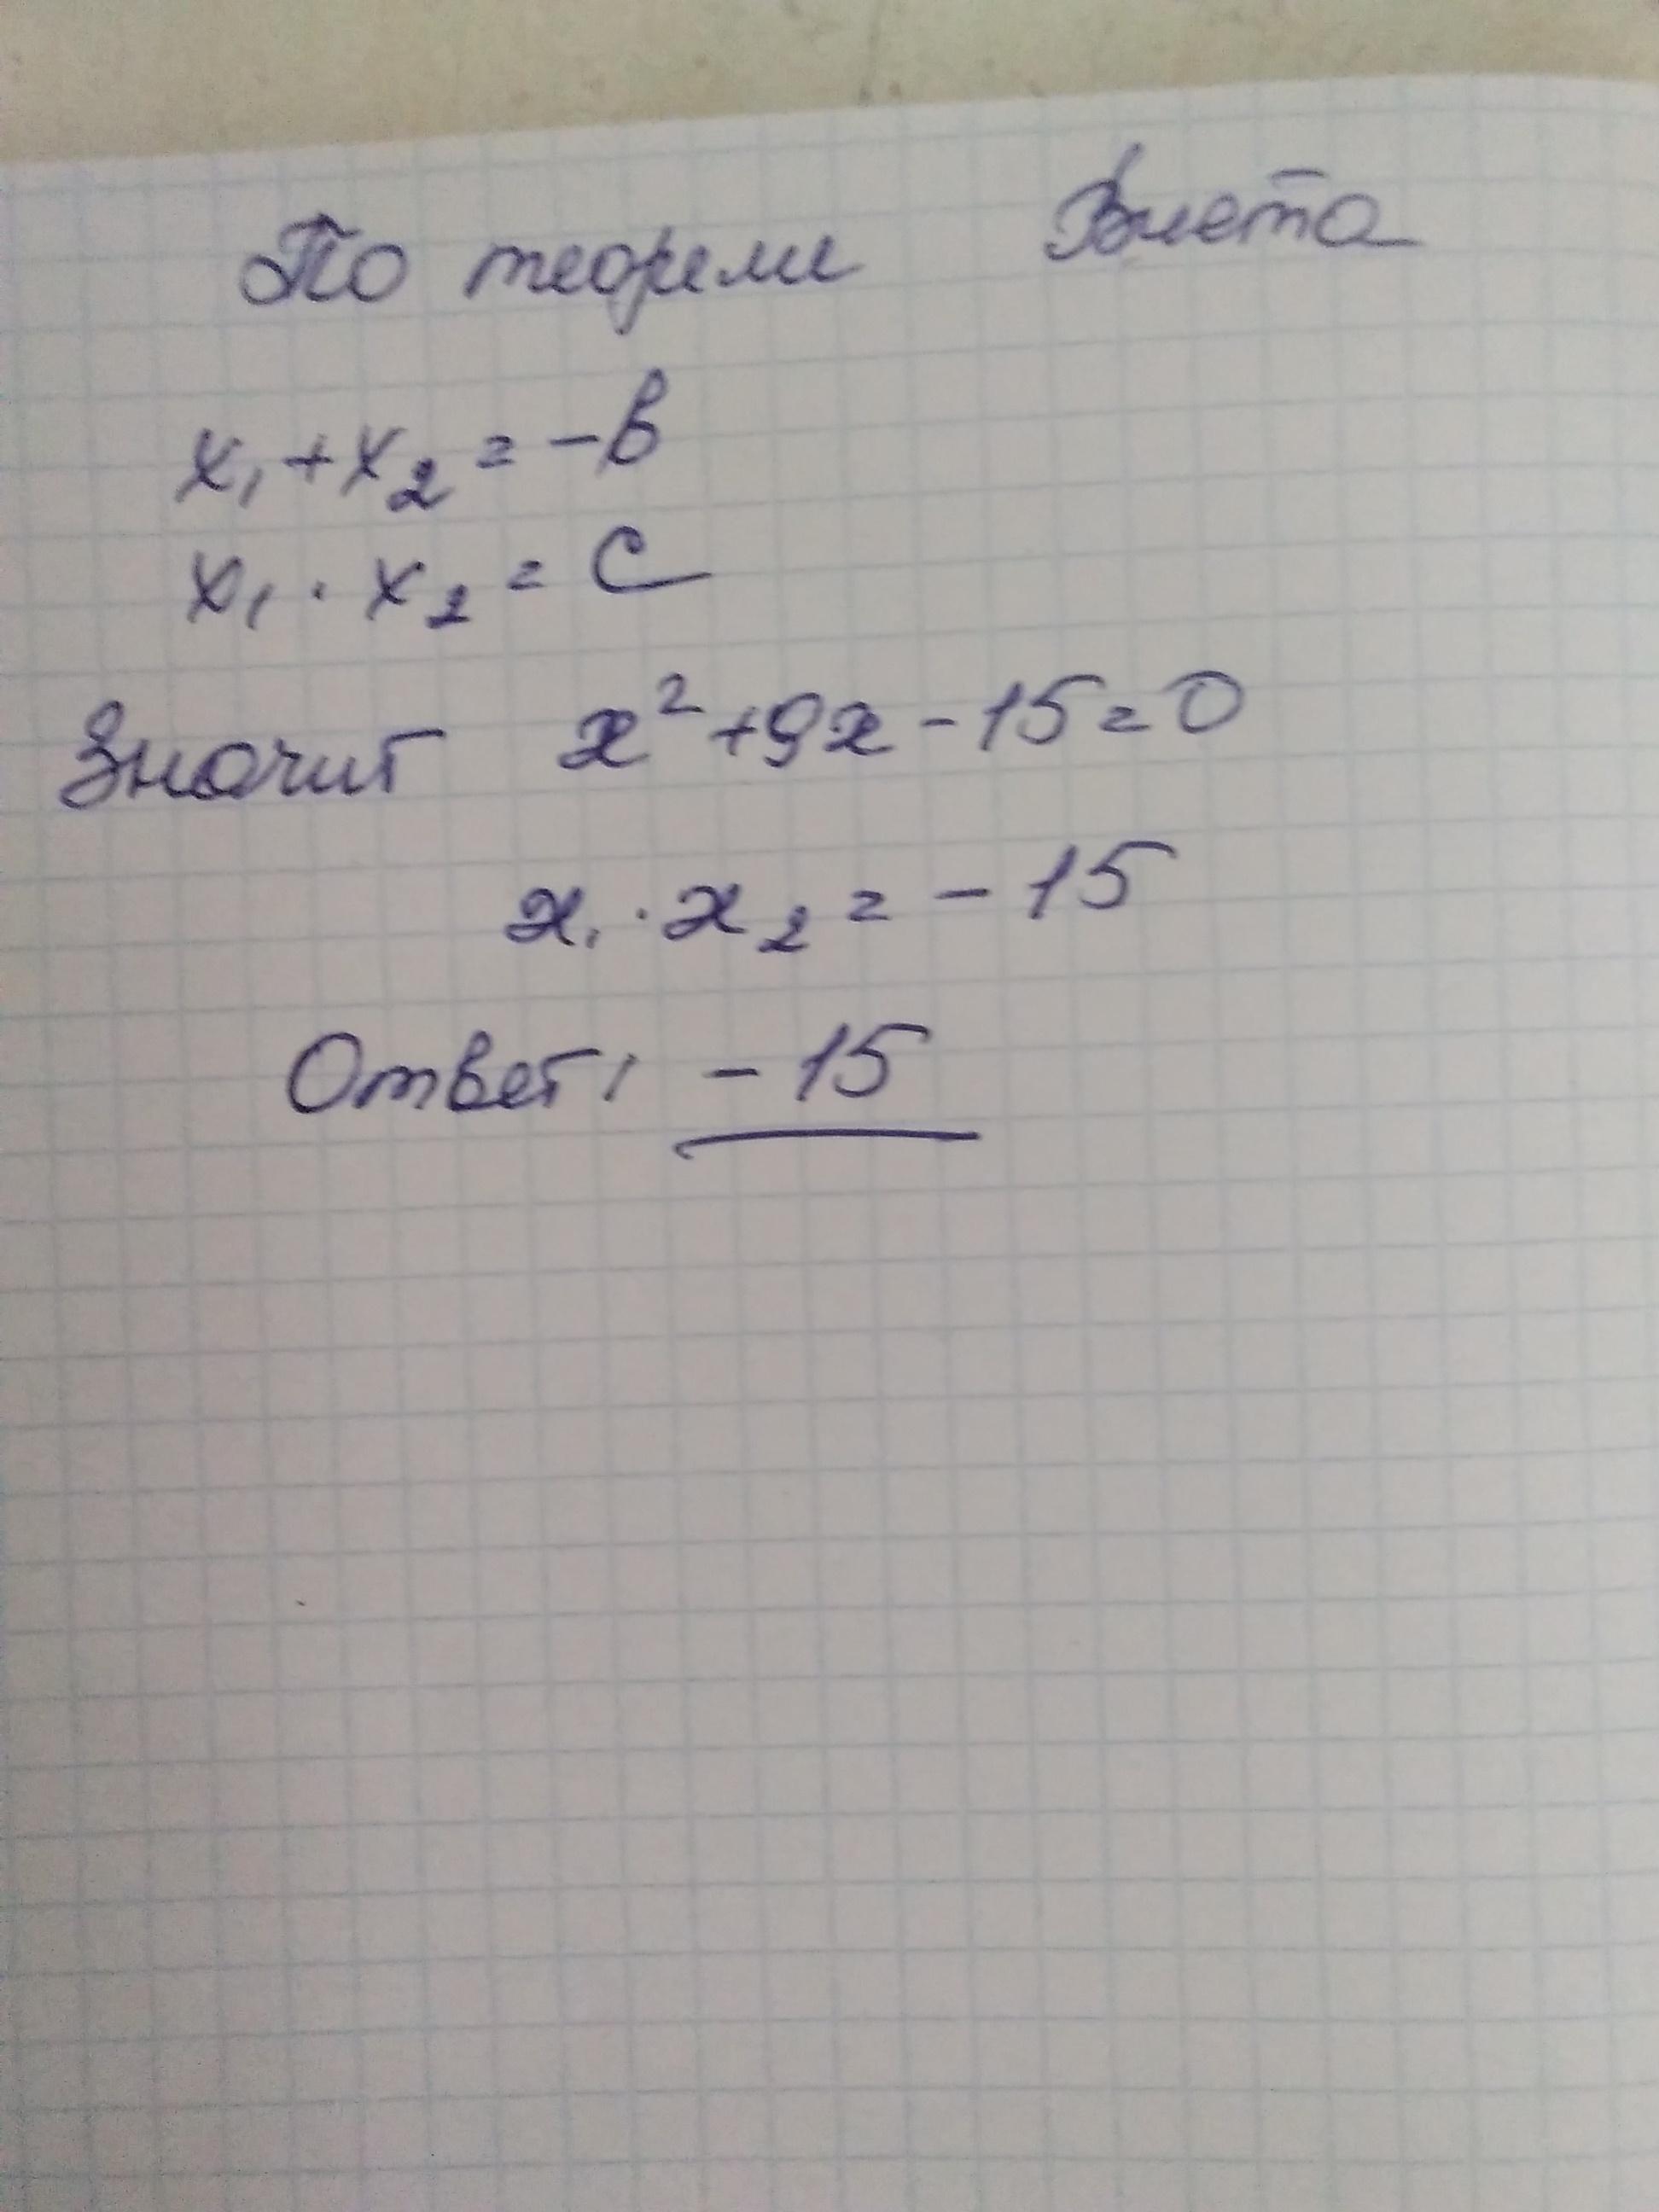 По теореме Виета
x₁ + x₂ = -в
x₁ · x₂ = с
Значит x² + 9x - 15 = 0
x₁ · x₂ = - 15
Ответ: - 15